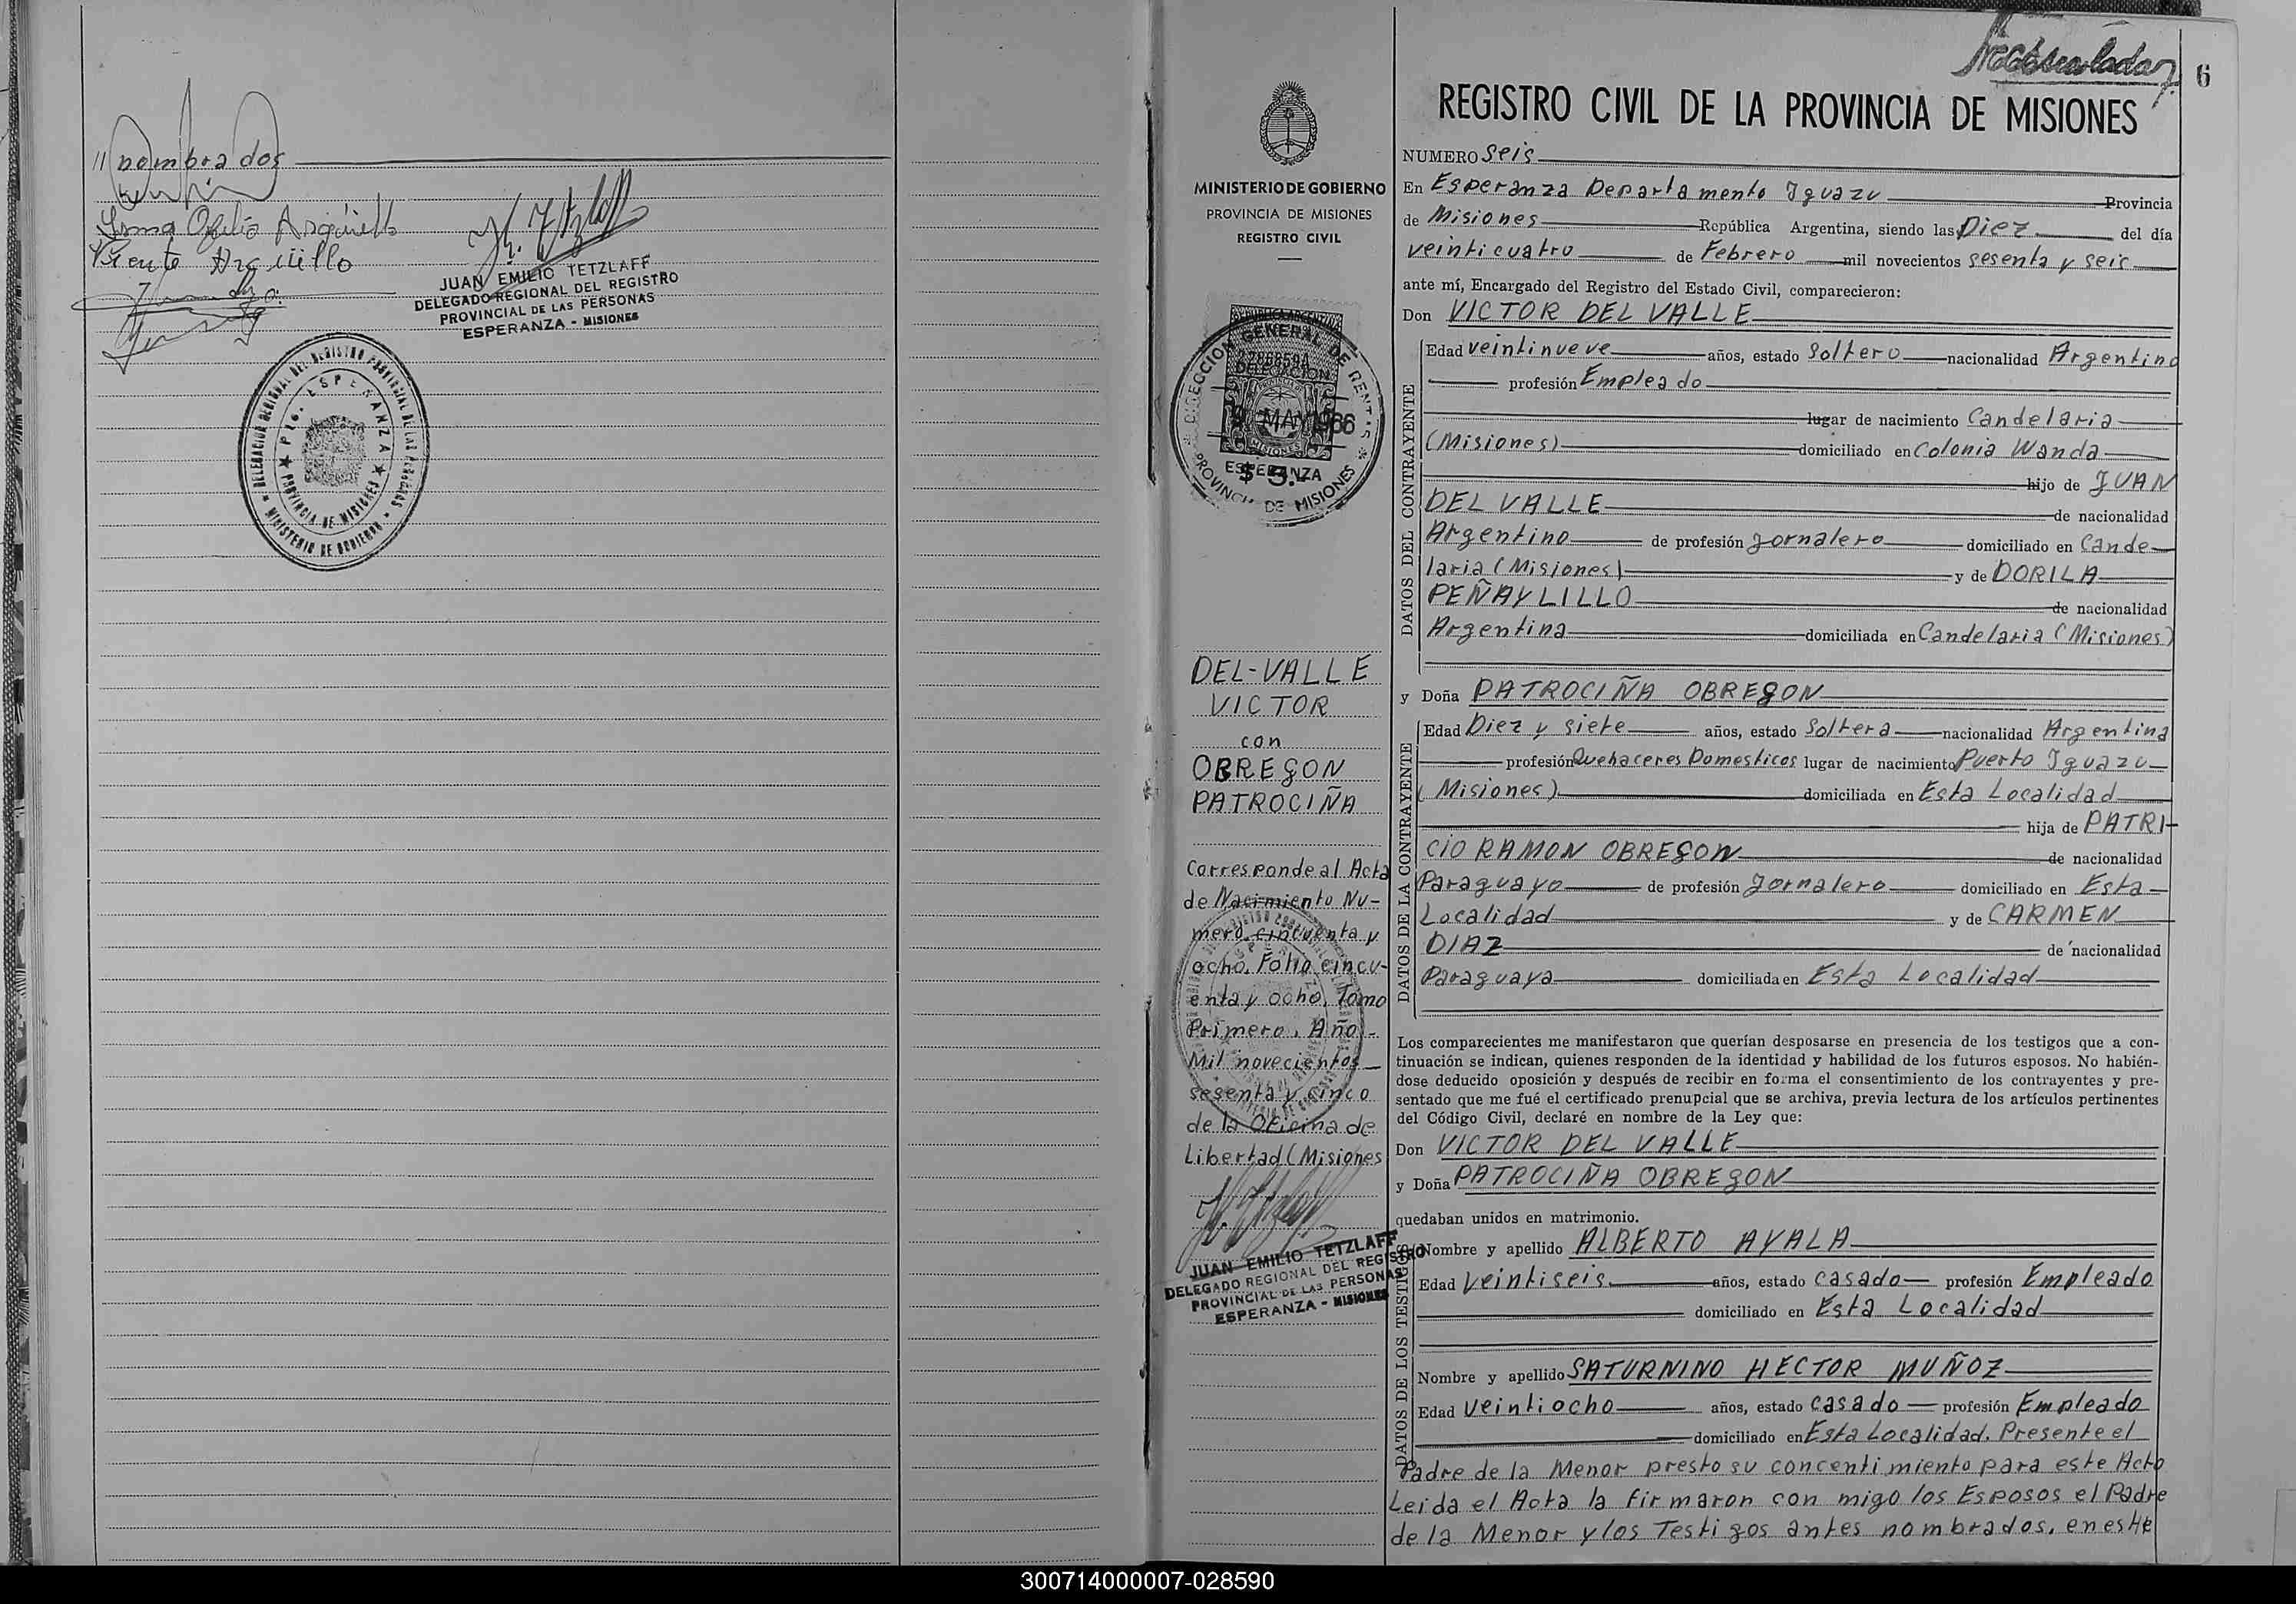 // nombrados
Irma Ofelia Argüello
Vicente Argüello
JUAN EMILIO TETZLAFF
DELEGADO REGIONAL DEL REGISTRO
PROVINCIAL DE LAS PERSONAS
ESPERANZA - MISIONES
DELEGACION REGIONAL DEL REGISTRO PROVINCIAL DE LAS PERSONAS
MINISTERIO DE GOBIERNO
ESPERANZA
PROVINCIA DE MISIONES
6
MINISTERIO DE GOBIERNO
PROVINCIA DE MISIONES
REGISTRO CIVIL
DIRECCION GENERAL DE RENTAS
PROVINCIA DE MISIONES
REPUBLICA ARGENTINA
DELEGACION
9 MAY 1966
MISIONES
ESPERANZA
$ 3.-
DEL-VALLE
VICTOR
con
OBREGON
PATROCIÑA
Corresponde al Acta
de Nacimiento Nu-
mero cincuenta y
ocho, Folio cincu-
enta y ocho, Tomo
Primero, Año -
Mil novecientos
sesenta y cinco
de la Oficina de
Libertad (Misiones
JUAN EMILIO TETZLAFF
DELEGADO REGIONAL DEL REGISTRO
PROVINCIAL DE LAS PERSONAS
ESPERANZA - MISIONES
REGISTRO CIVIL DE LA PROVINCIA DE MISIONES
NUMERO Seis
En Esperanza Departamento Iguazu Provincia
de Misiones República Argentina, siendo las Diez del día
veinticuatro de Febrero mil novecientos sesenta y seis
ante mí, Encargado del Registro del Estado Civil, comparecieron:
Don VICTOR DEL VALLE
DATOS DEL CONTRAYENTE
Edad veintinueve años, estado Soltero nacionalidad Argentino
profesión Empleado
lugar de nacimiento Candelaria
(Misiones) domiciliado en Colonia Wanda
hijo de JUAN
DEL VALLE de nacionalidad
Argentino de profesión Jornalero domiciliado en Cande-
laria (Misiones) y de DORILA
PEÑAYLILLO de nacionalidad
Argentina domiciliada en Candelaria (Misiones)
y Doña PATROCIÑA OBREGON
DATOS DE LA CONTRAYENTE
Edad Diez y siete años, estado Soltera nacionalidad Argentina
profesión Quehaceres Domesticos lugar de nacimiento Puerto Iguazu
(Misiones) domiciliada en Esta Localidad
hija de PATRI-
CIO RAMON OBREGON de nacionalidad
Paraguayo de profesión Jornalero domiciliado en Esta
Localidad y de CARMEN
DIAZ de nacionalidad
Paraguaya domiciliada en Esta Localidad
Los comparecientes me manifestaron que querían desposarse en presencia de los testigos que a con-
tinuación se indican, quienes responden de la identidad y habilidad de los futuros esposos. No habién-
dose deducido oposición y después de recibir en forma el consentimiento de los contrayentes y pre-
sentado que me fué el certificado prenupcial que se archiva, previa lectura de los artículos pertinentes
del Código Civil, declaré en nombre de la Ley que:
Don VICTOR DEL VALLE
y Doña PATROCIÑA OBREGON
quedaban unidos en matrimonio.
DATOS DE LOS TESTIGOS
Nombre y apellido ALBERTO AYALA
Edad Veintiseis años, estado casado profesión Empleado
domiciliado en Esta Localidad
Nombre y apellido SATURNINO HECTOR MUÑOZ
Edad Veintiocho años, estado casado profesión Empleado
domiciliado en Esta Localidad. Presente el
Padre de la Menor presto su concentimiento para este Acto
Leida el Acta la firmaron con migo los Esposos el Padre
de la Menor y los Testigos antes nombrados, en este
300714000007-028590